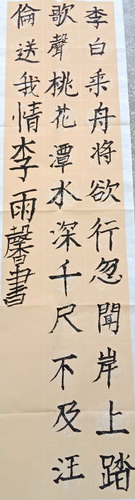 李白乘舟将欲行忽聞岸上踏
歌聲桃花潭水深千尺不及汪
倫送我情李雨馨書